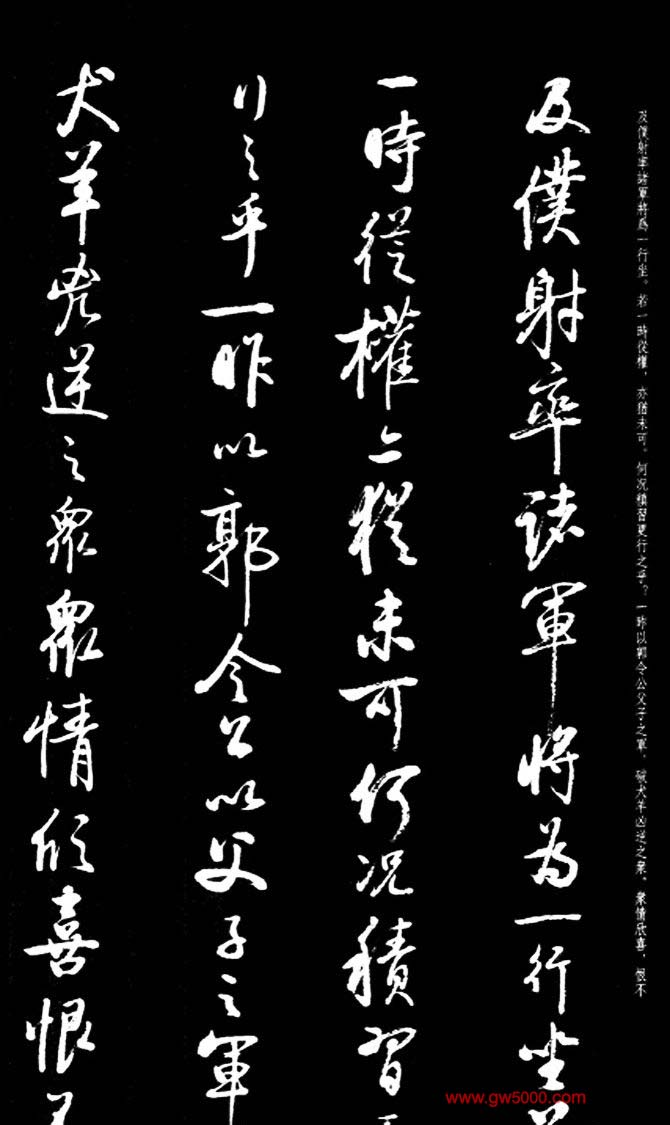 及僕射率諸軍將爲一行坐。若一時從權，亦猶未可。何況積習更行之乎？一昨以郭令公父子之軍，破犬羊凶逆之衆，衆情欣喜，恨不
及僕射率諸軍將為一行坐
一時從權亦猶未可何況積習
行之乎一昨以郭令公以父子之軍
犬羊兇逆之衆衆情欣喜恨不
www.gw5000.com